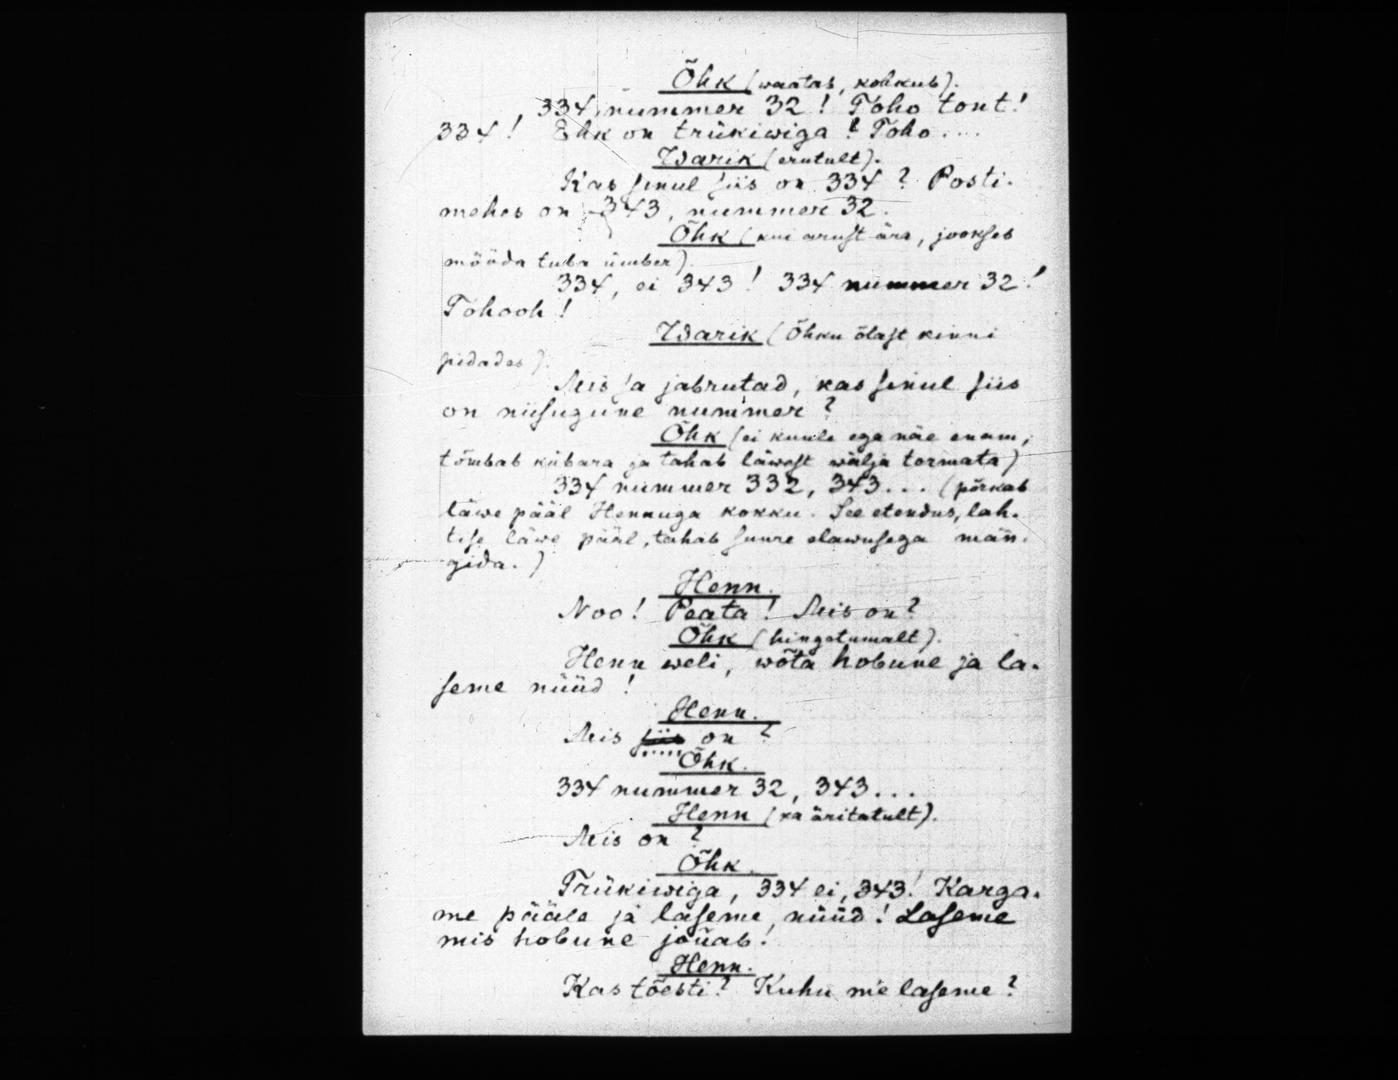 Õhk (waatab, kohkub).
334, nummer 32! Toho tont!
334! Ehk on trükiwiga? Toho....
Warik (erutult).
Kas sinul siis on 334? Posti-
mehes on 343, nummer 32.
Õhk (kui arust ära, jookseb
mööda tuba ümber).
334, ei 343! 334 nummer 32!
Tohooh!
Warik (Õhku õlast kinni
pidades).
Mis sa jabrutad, kas sinul siis
on niisugune nummer?
Õhk (ei kuule ega näe enam,
tõmbab kübara ja tahab läwest wälja tormata)
334 nummer 332, 343... (põrkab
läwe pääl Hennuga kokku. See etendus, lah-
tise läwe pääl, tahab suure elawusega män-
gida.)
Henn.
Noo! Peata! Mis on?
Õhk (hingetumalt).
Henn weli, wõta hobune ja la-
seme nüüd!
Henn.
Mis siis on?
Õhk.
334 nummer 32, 343...
Henn (ka äritatult).
Mis on?
Õhk.
Trükiwiga, 334 ei, 343! Karga-
me pääle ja laseme, nüüd! Laseme
mis hobune jõuab!
Henn.
Kas tõesti? Kuhu me laseme?